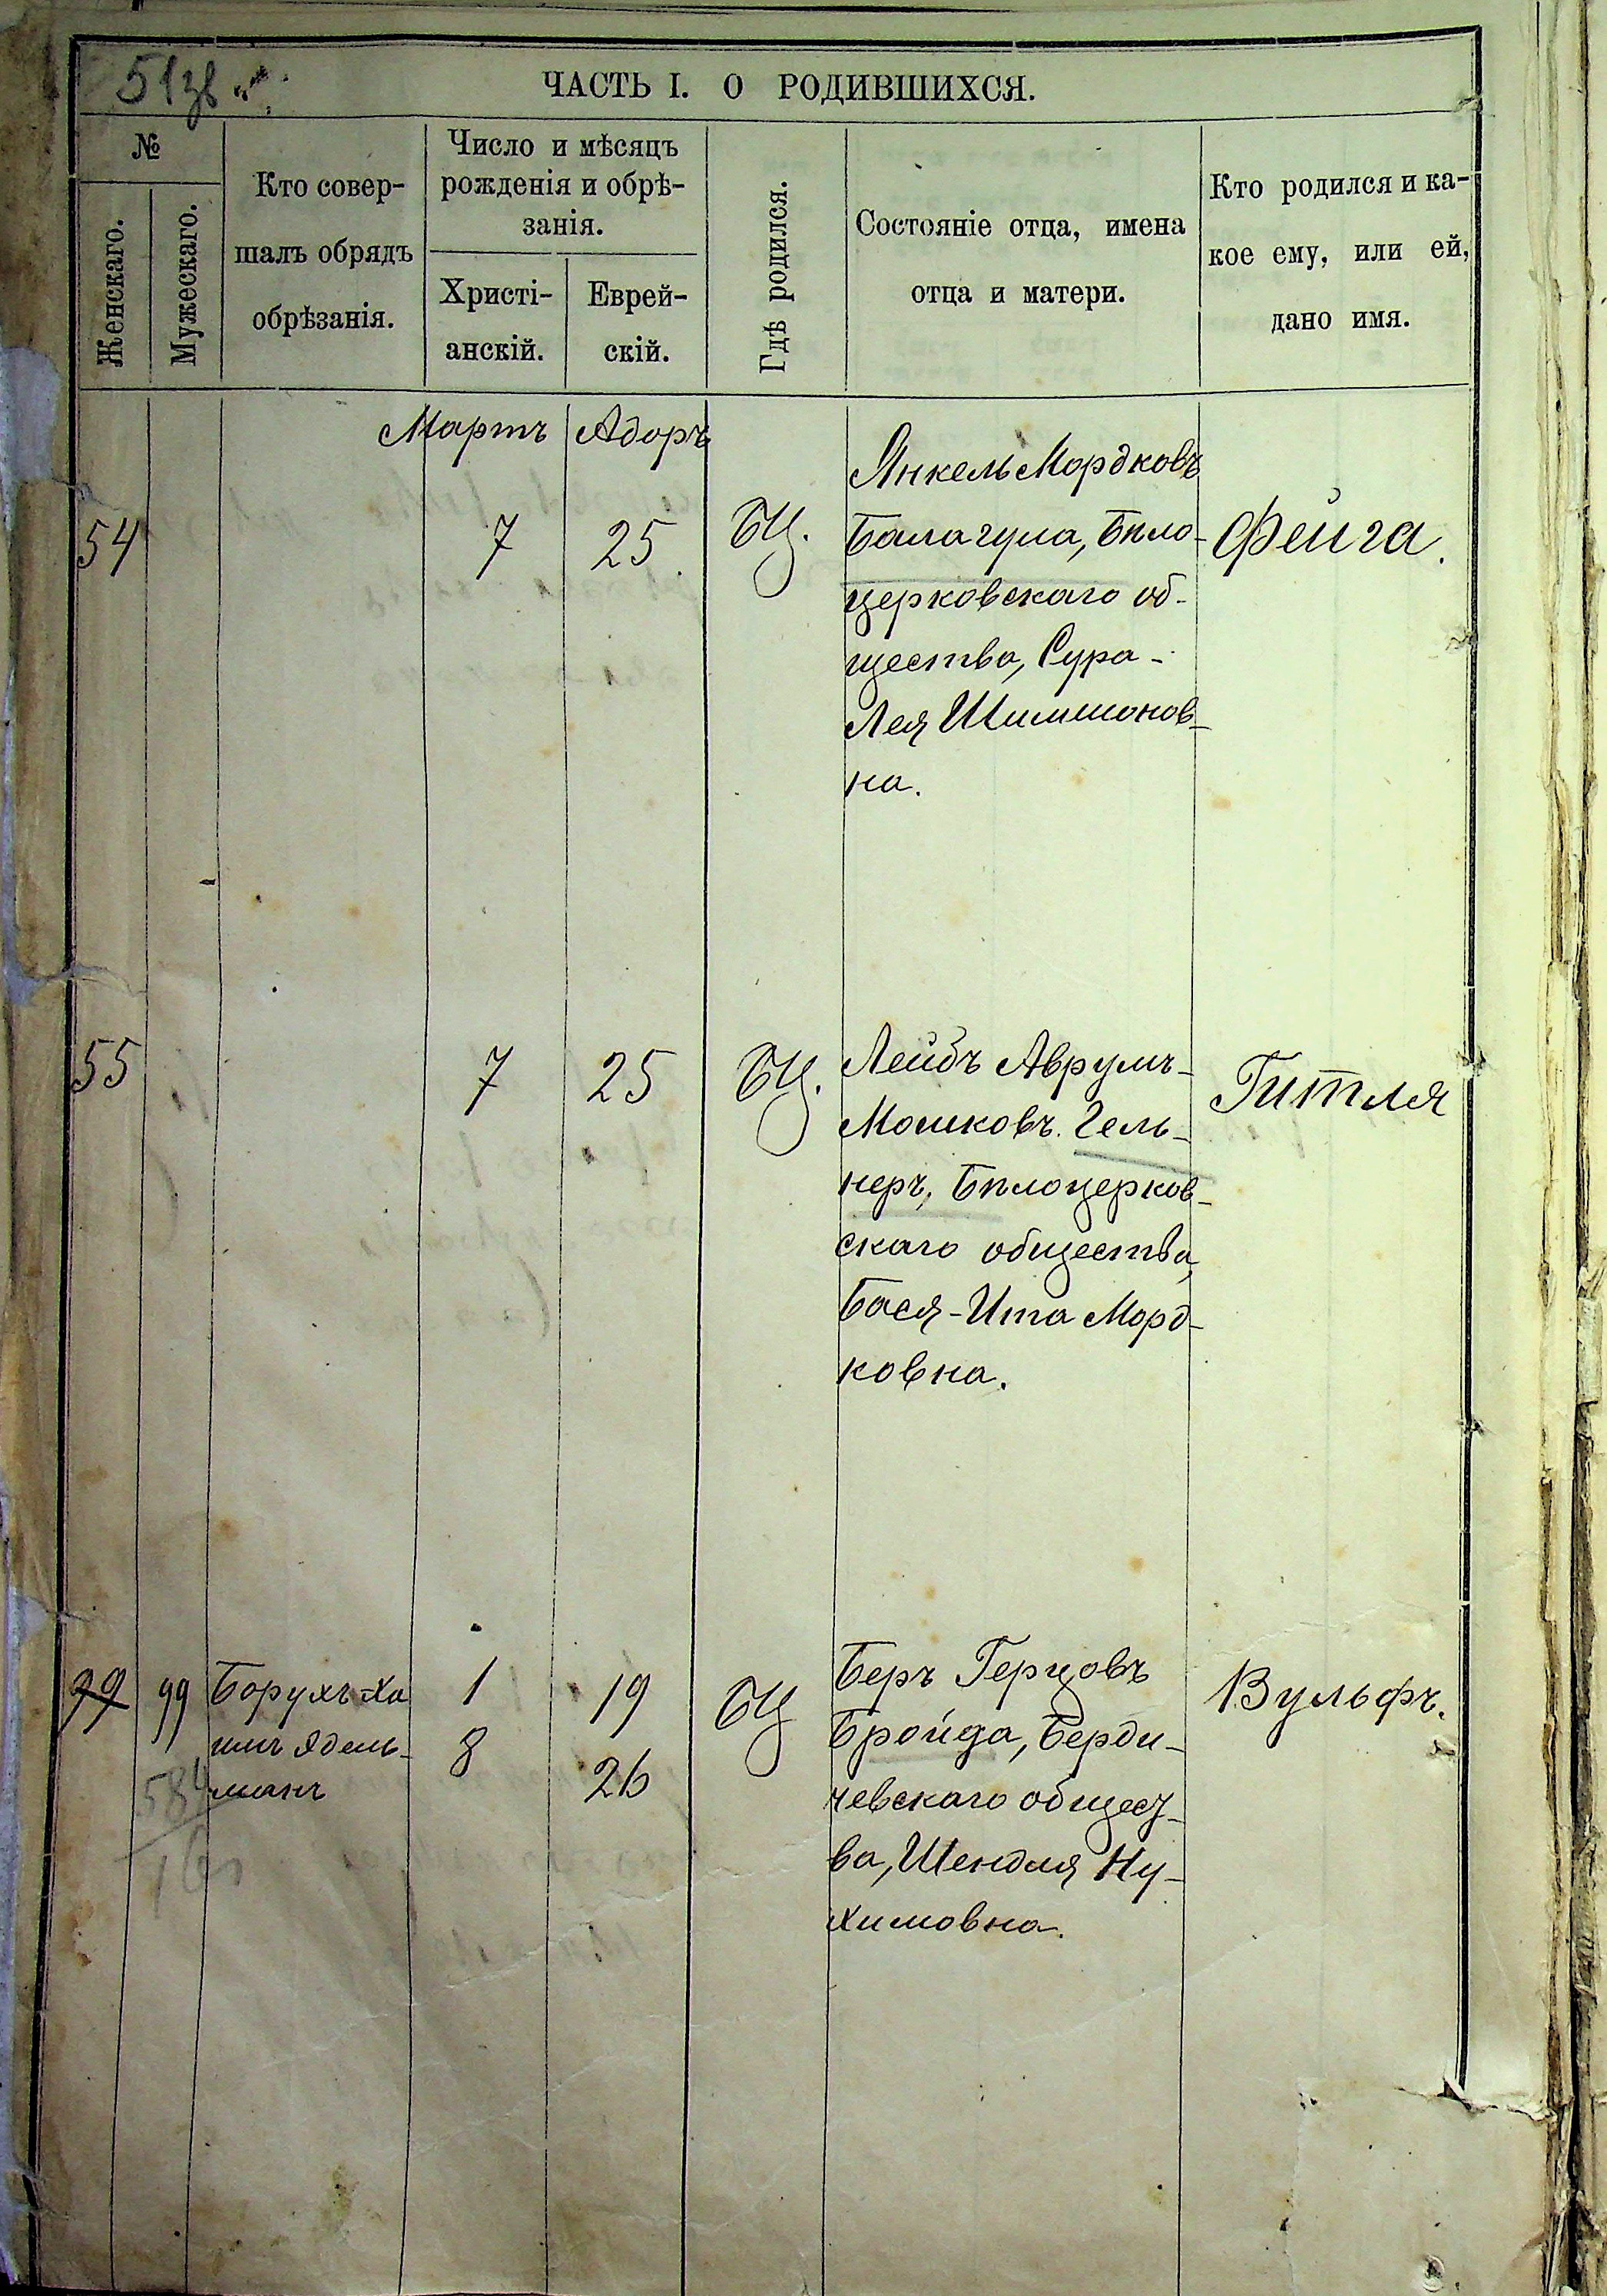 51зв
ЧАСТЬ I. О РОДИВШИХСЯ.
№
Женскаго.
Мужескаго.
Кто совер-
шалъ обрядъ
обрѣзанія.
Число и мѣсяцъ
рожденія и обрѣ-
занія.
Христі-
анскій.
Еврей-
скій.
Гдѣ родился.
Состояніе отца, имена
отца и матери.
Кто родился и ка-
кое ему, или ей,
дано имя.
Мартъ Адоръ
54 7 25 БЦ. Фейга.
Янкель Мордковъ
Балагула, Бѣло-
церковскаго об-
щества, Сура-
Лея Шимшонов-
на.
55 7 25 БЦ. Гитля
Лейбъ Аврумъ-
Мошковъ Гель-
неръ, Бѣлоцерков-
скаго общества,
Бася-Ита Морд-
ковна.
99 99
Борухъ-Ха
имъ Ядель-
манъ
584
1 19 БЦ Вульфъ.
8 26
Беръ Герцовъ
Бройда, Берди-
чевскаго общест-
ва, Шендля Ну-
химовна.